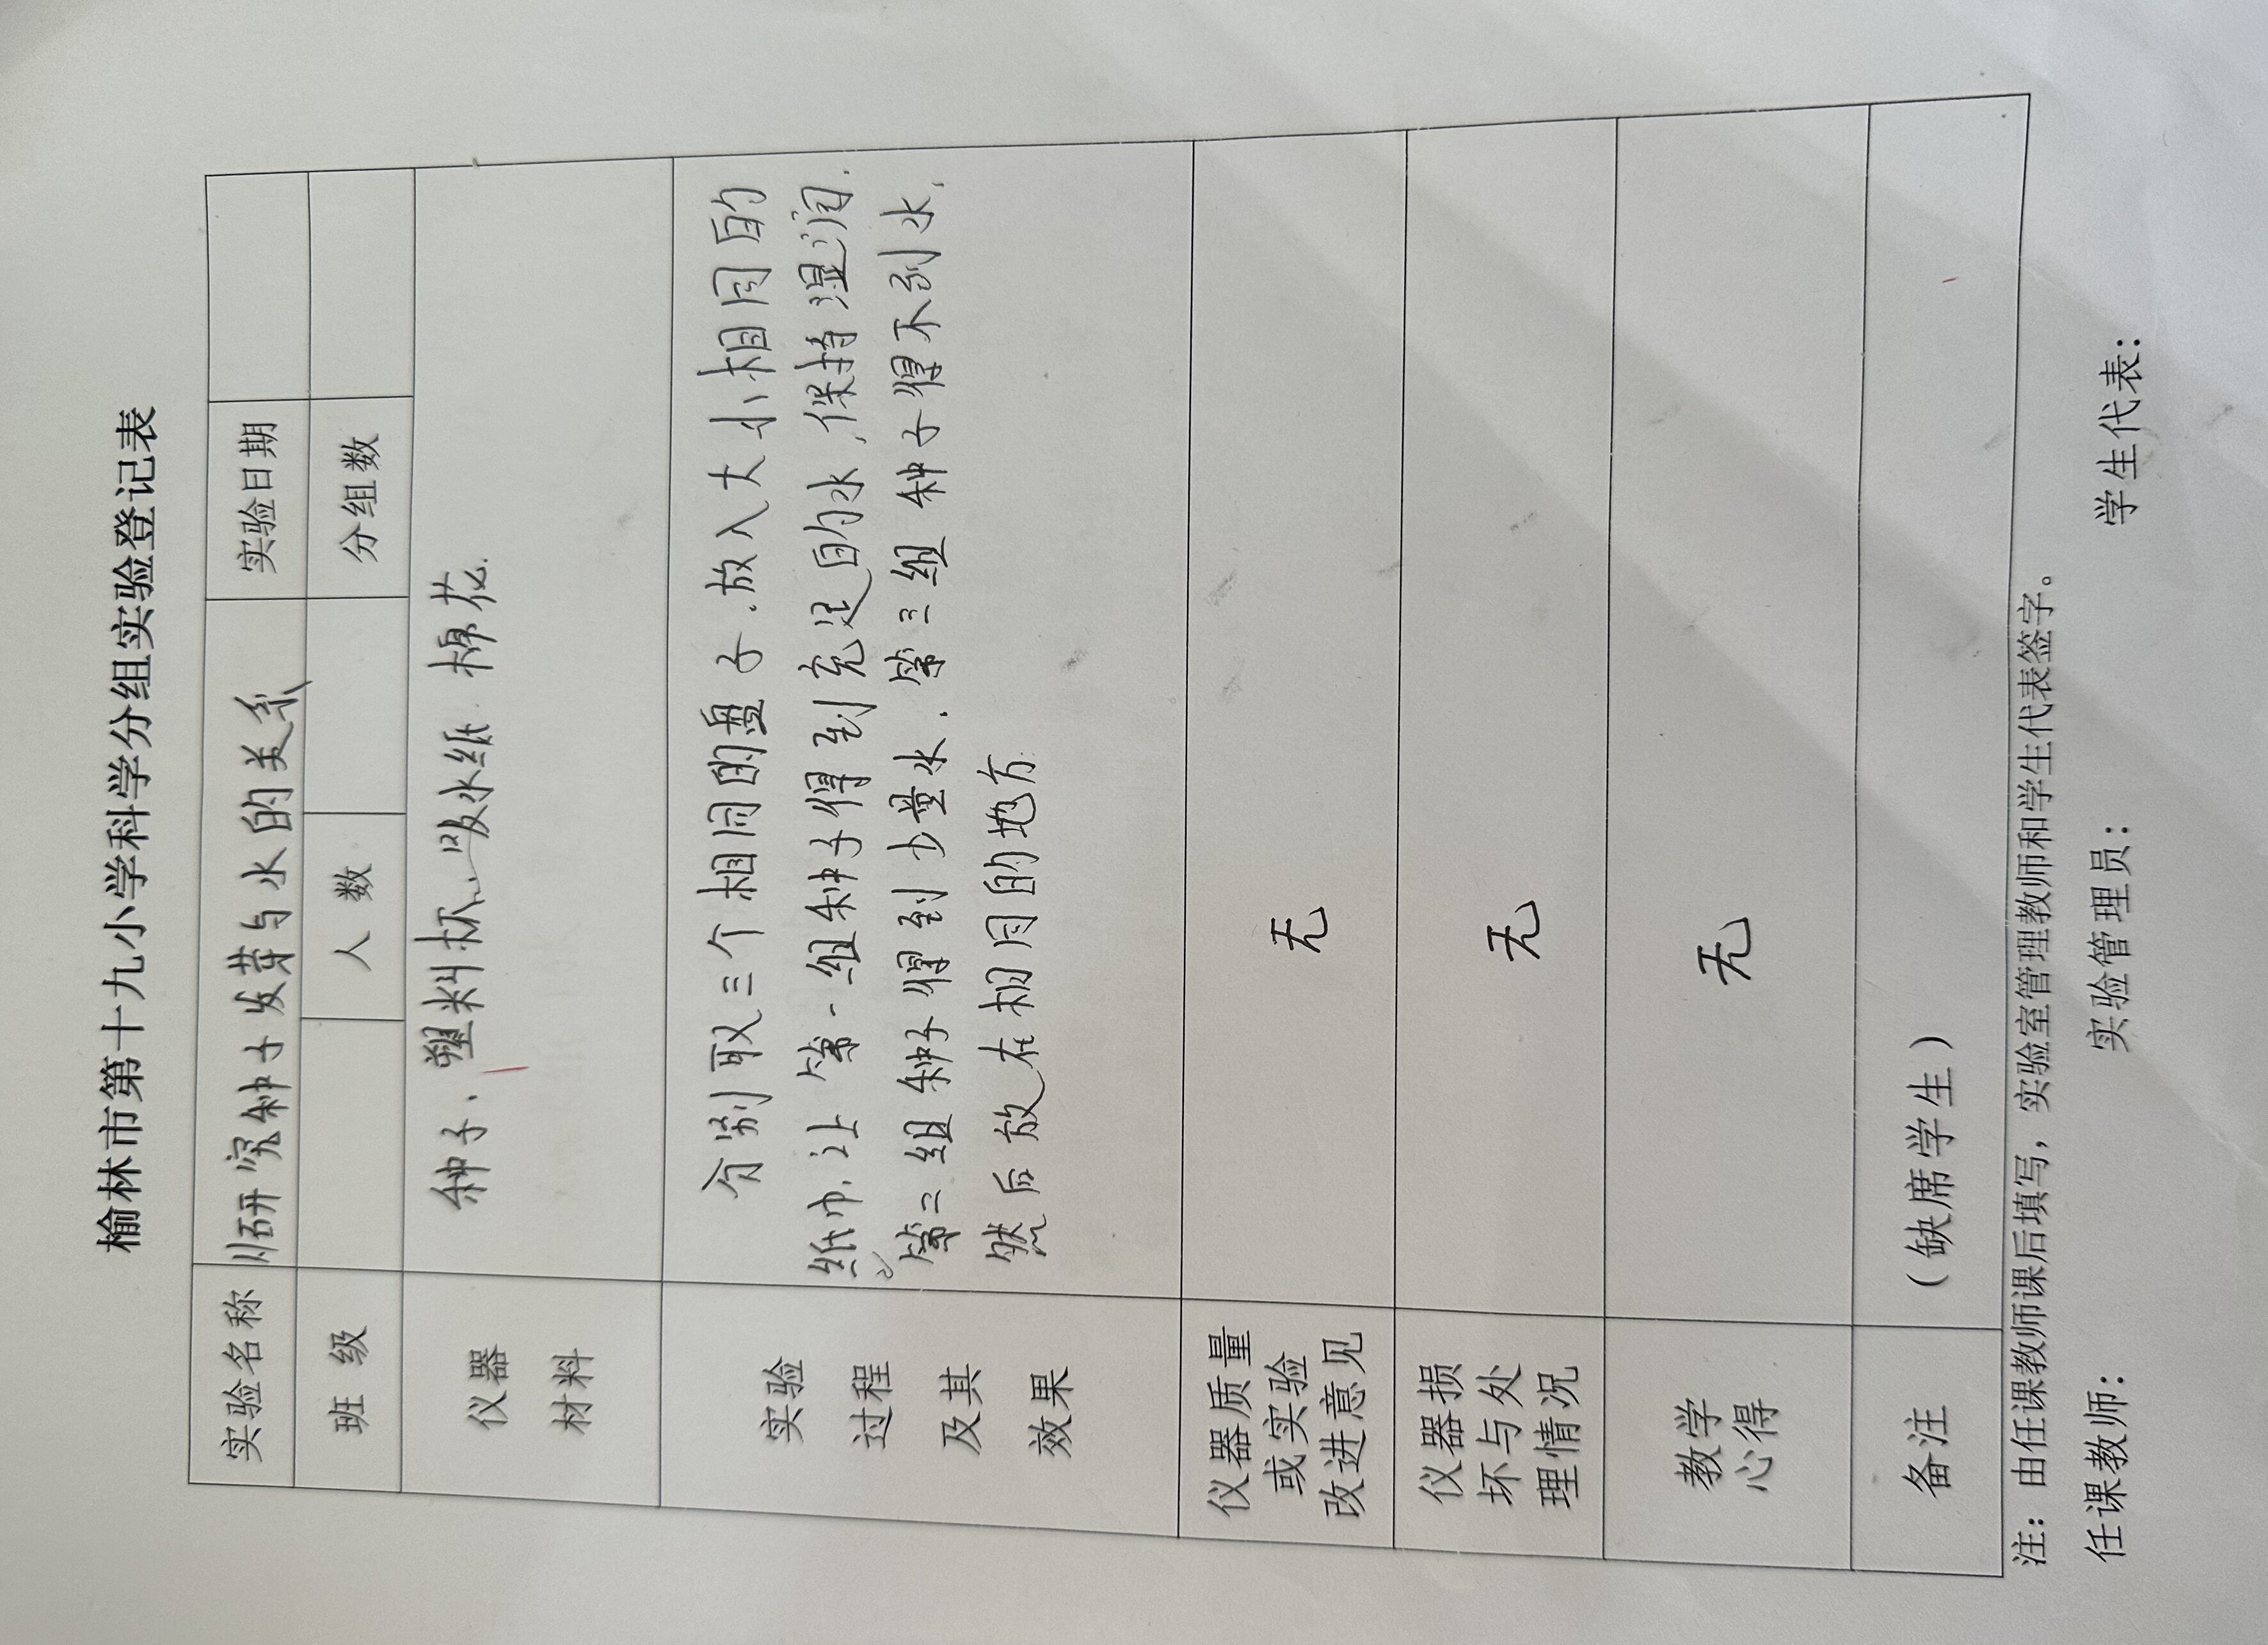 榆林市第十九小学科学分组实验登记表
实验名称 研究种子发芽与水的关系 实验日期
班 级 人 数 分组数
仪器
材料
种子、塑料杯、吸水纸 棉花.
实验
过程
及其
效果
分别取三个相同的盘子.放入大小相同的
纸巾,让第一组种子得到充足的水,保持湿润.
第二组种子得到少量水.第三组种子得不到水,
然后放在相同的地方
仪器质量
或实验
改进意见
无
仪器损
坏与处
理情况
无
教学
心得
无
备注 (缺席学生)
注：由任课教师课后填写，实验室管理教师和学生代表签字。
任课教师： 实验管理员： 学生代表：